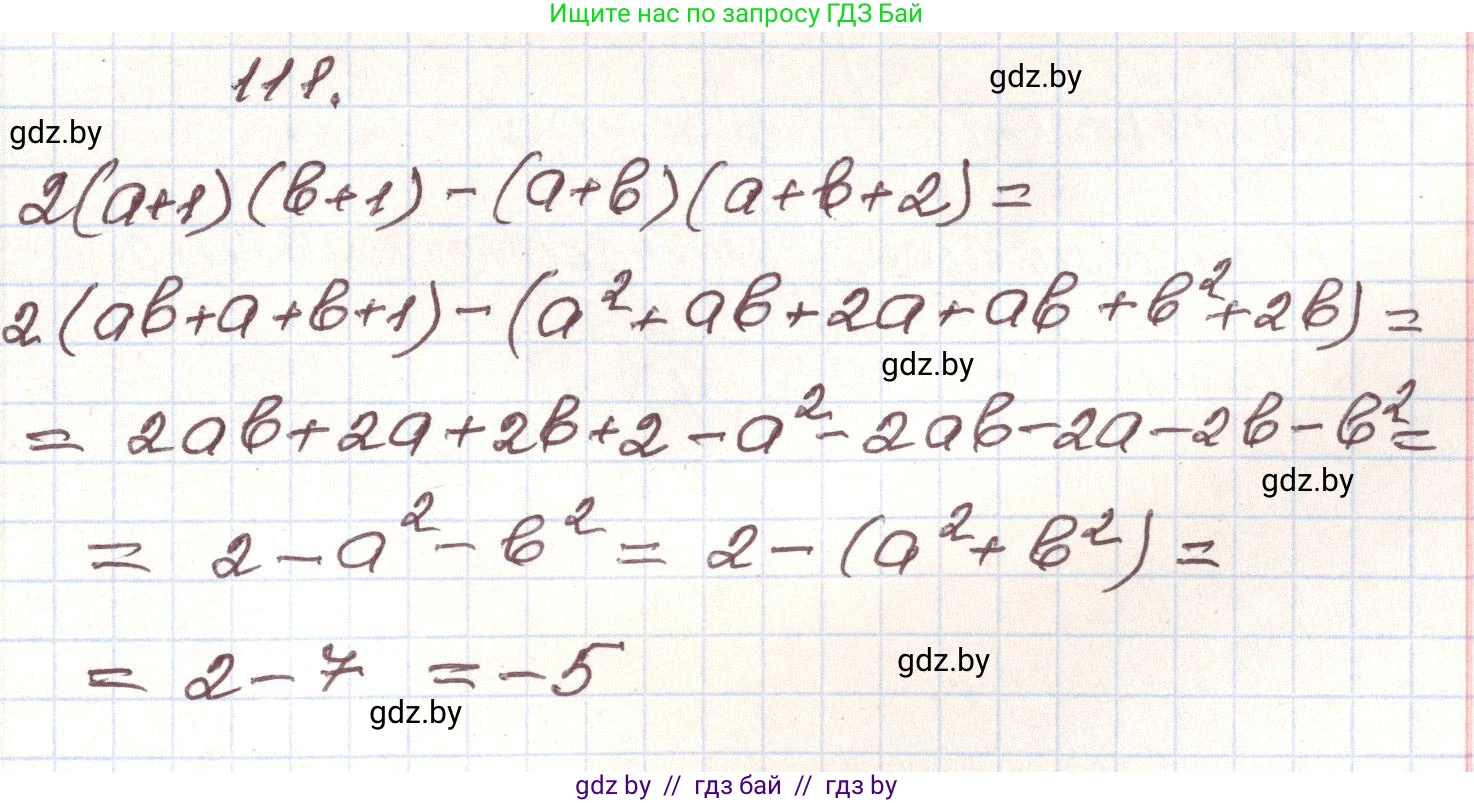 Ищите нас по запросу ГДЗ Бай
118.
gdz.by
gdz.by
2(a+1)(b+1)-(a+b)(a+b+2)=
2(ab+a+b+1)-(a²+ab+2a+ab+b²+2b)=
gdz.by
= 2ab+2a+2b+2-a²-2ab-2a-2b-b²=
gdz.by
= 2-a²-b²= 2-(a²+b²)=
= 2-7 =-5
gdz.by
gdz.by
gdz by // гдз бай // гдз by